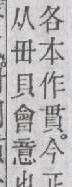 各本作貫。今正
从毌貝會意也